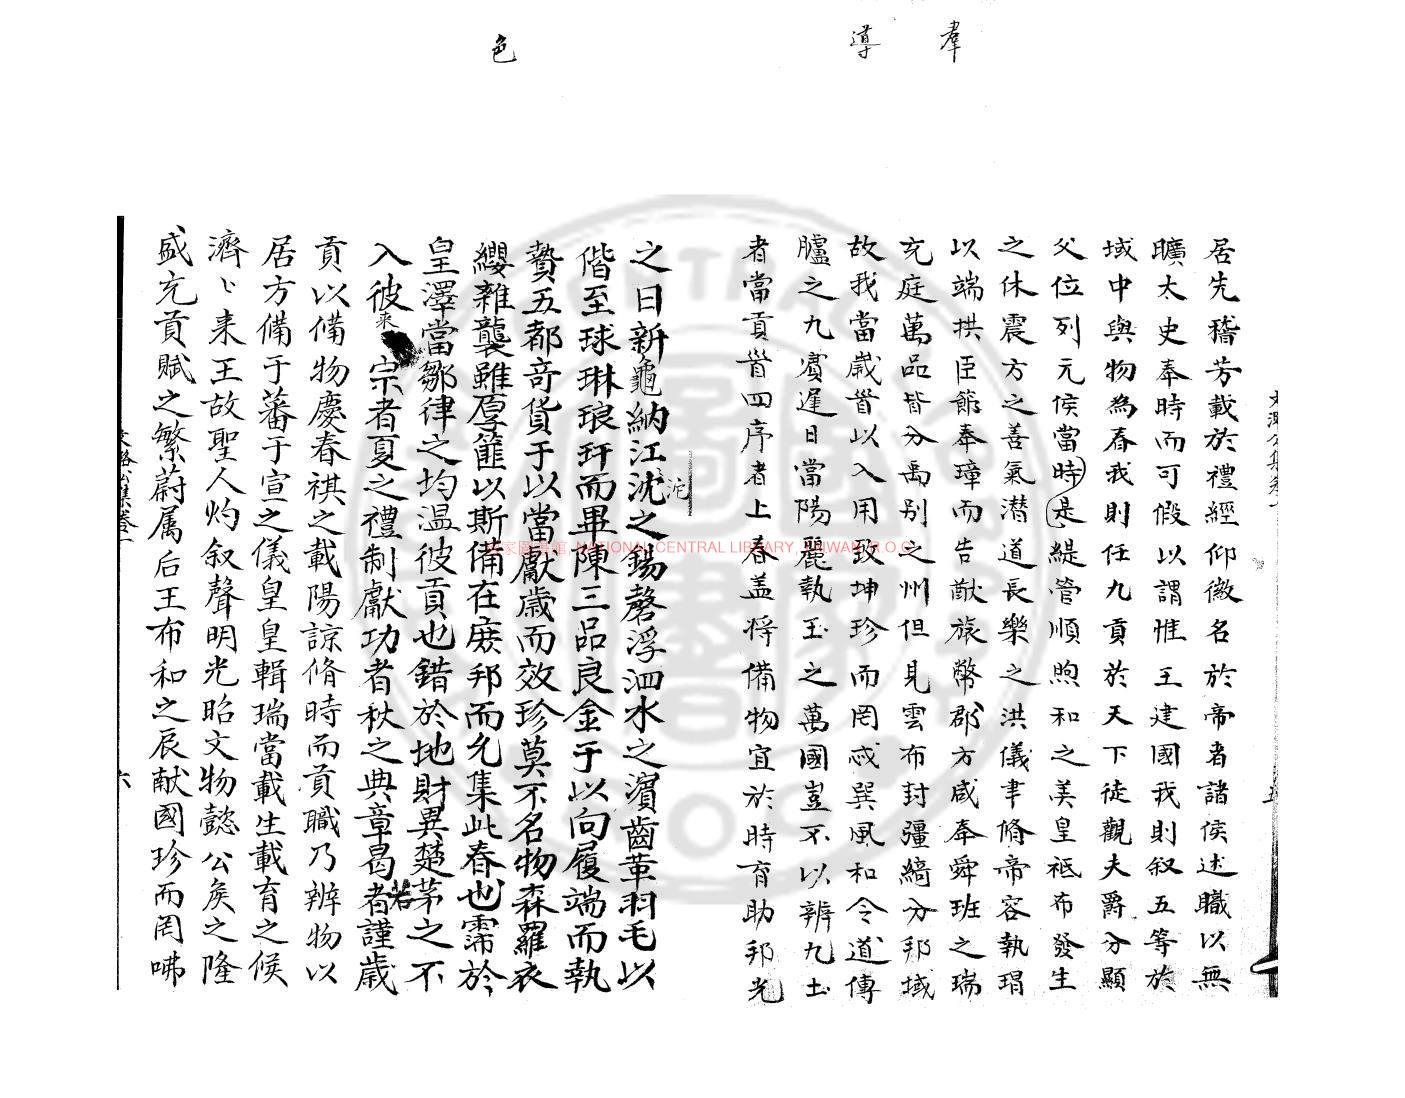 羣
導
色
居先稽芳載於禮經仰徽名於帝者諸侯述職以無
曠太史奉時而可假以謂惟王建國我則叙五等於
域中與物為春我則任九貢於天下徒觀夫爵分顯
父位列元侯當時是緹管順煦和之美皇祗布發生
之休震方之善氣潜道長樂之洪儀聿脩帝容執瑁
以端拱臣節奉璋而告猷旅幣郡方咸奉舜班之瑞
充庭萬品皆分禹别之州但見雲布封彊綺分邦域
故我當歲首以入用致坤珍而罔忒巽風和令道傳
臚之九賓遲日當陽麗執玉之萬國豈不以辨九土
者當貢首四序者上春盖将備物宜於時育助邦光
之日新龜納江沈之錫磬浮泗水之濱齒革羽毛以
沱
偕至球琳琅玕而畢陳三品良金于以向履端而執
贄五都竒貨于以當獻歲而效珍莫不名物森羅衣
纓雜襲雖厚篚以斯備在庶邦而允集此春也霈於
皇澤當鄒律之均温彼貢也錯於地財異楚茅之不
入彼宗者夏之禮制獻功者秋之典章曷若者謹歲
来
貢以備物慶春祺之載陽諒脩時而貢職乃辨物以
居方備于蕃于宣之儀皇皇輯瑞當載生載育之候
濟〻来王故聖人灼叙聲明光昭文物懿公矦之隆
盛充貢賦之繁蔚属后王布和之辰献國珍而罔咈
六
國家圖書館, NATIONAL CENTRAL LIBRARY, TAIWAN, R.O.C